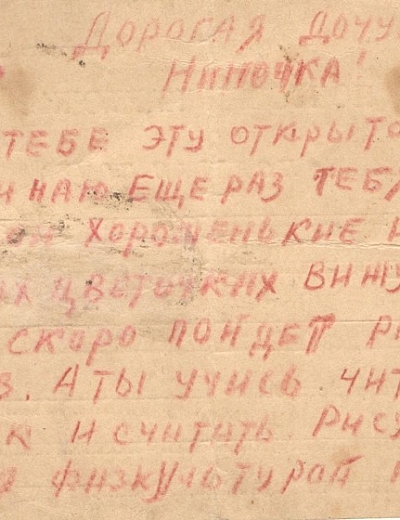 ДОРОГАЯ ДОЧУ
НИНОЧКА!
ТЕБЕ ЭТУ ОТКРЫТО
И НАЮ ЕЩЕ РАЗ ТЕБЯ
ОИ ХОРОШЕНЬКИЕ
ЫХ ЦВЕТОЧКАХ ВИЖУ
СКОРО ПОЙДЕТ
В. А ТЫ УЧИСЬ ЧИТ
К И СЧИТАТЬ. РИСУ
ФИЗКУЛЬТУРОЙ